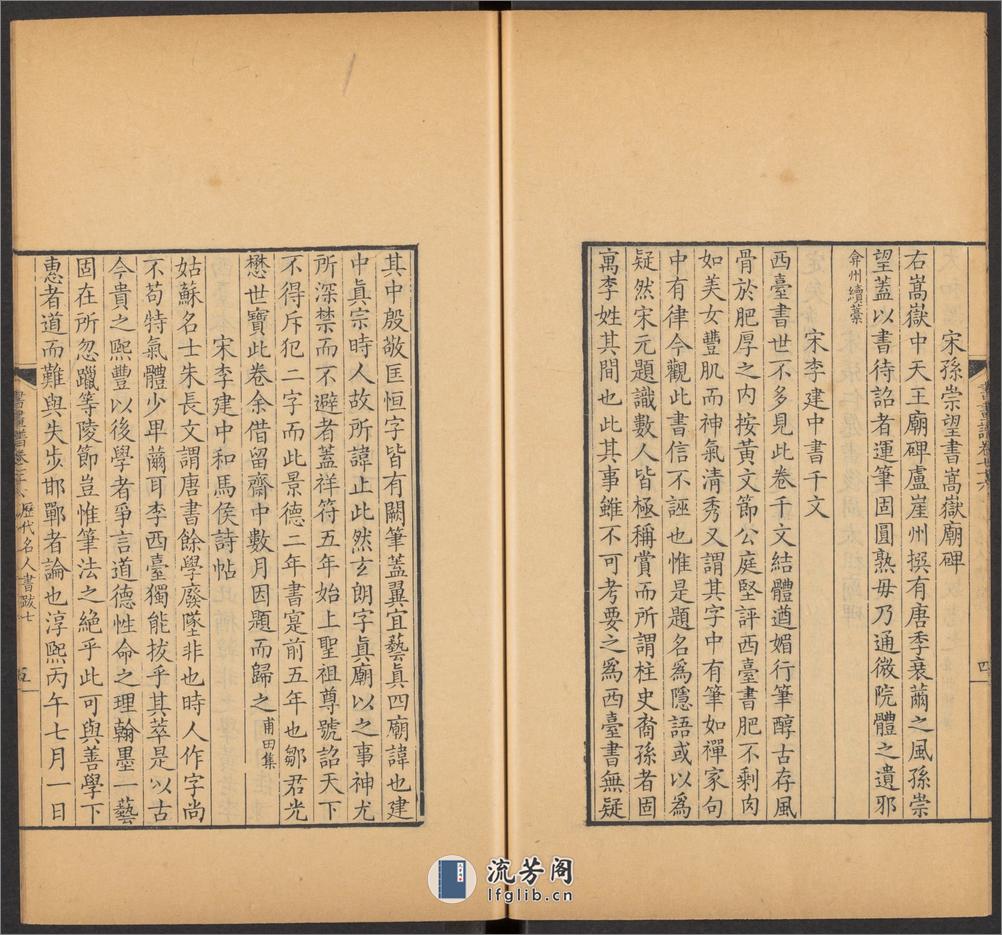 宋孫崇望書嵩嶽廟碑
右嵩嶽中天王廟碑盧崖州撰有唐季衰薾之風孫崇
望蓋以書待詔者運筆固圓熟毋乃通微院體之遺邪
弇州續藁
宋李建中書千文
西臺書世不多見此卷千文結體遒媚行筆醇古存風
骨於肥厚之內按黃文節公庭堅評西臺書肥不剩肉
如美女豐肌而神氣清秀又謂其字中有筆如禪家句
中有律今觀此書信不誣也惟是題名為隱語或以為
疑然宋元題識數人皆極稱賞而所謂柱史裔孫者固
寓李姓其間也此其事雖不可考要之為西臺書無疑
四
其中殷敬匡恒字皆有闕筆蓋翼宜藝真四廟諱也建
中真宗時人故所諱止此然玄朗字真廟以之事神尤
所深禁而不避者蓋祥符五年始上聖祖尊號詔天下
不得斥犯二字而此景德二年書寔前五年也鄒君光
懋世寶此卷余借留齋中數月因題而歸之甫田集
宋李建中和馬侯詩帖
姑蘇名士朱長文謂唐書餘學廢墜非也時人作字尚
不苟特氣體少卑薾耳李西臺獨能拔乎其萃是以古
今貴之熙豐以後學者爭言道德性命之理翰墨一藝
固在所忽躐等陵節豈惟筆法之絕乎此可與善學下
惠者道而難與失步邯鄲者論也淳熙丙午七月一日
歷代名人書跋七
五
流芳阁
lfglib.cn